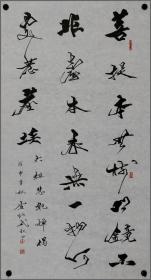 菩提本無樹明鏡亦
非臺本來無一物何
處惹塵埃
六祖惠能禪偈